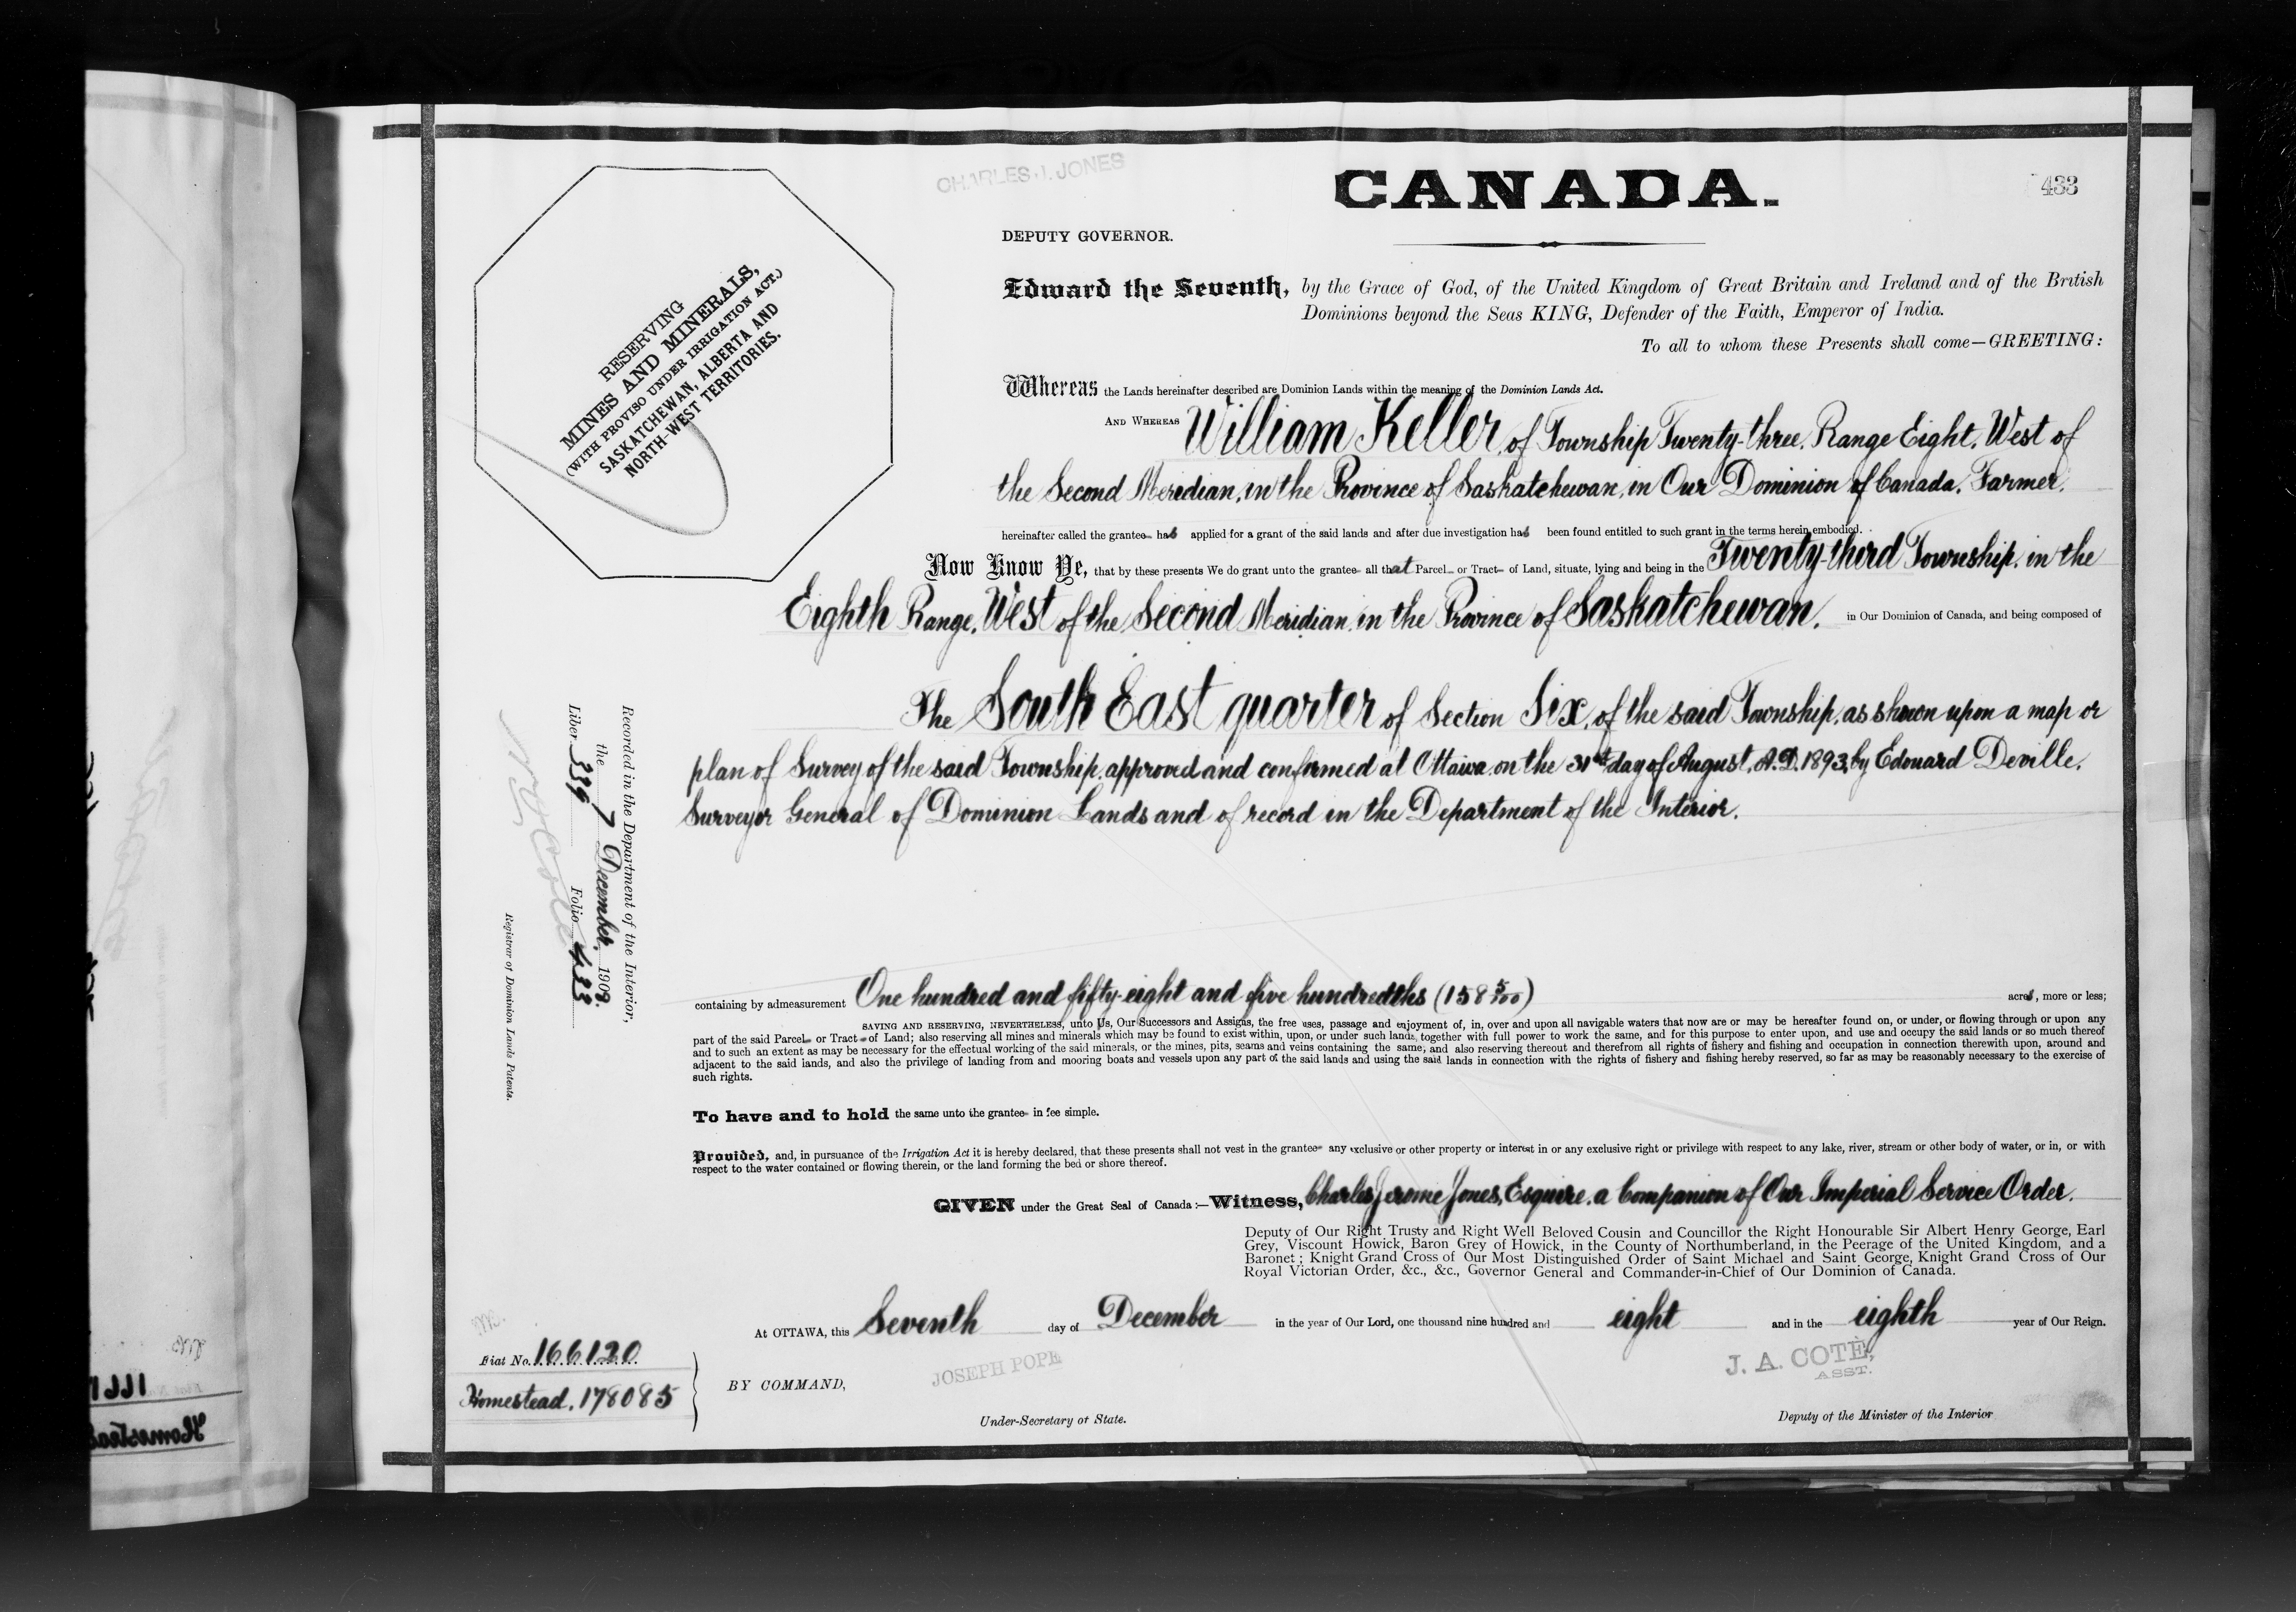 CHARLES J. JONES
CANADA.
433
DEPUTY GOVERNOR.
RESERVING
MINES AND MINERALS,
(WITH PROVISO UNDER IRRIGATION ACT.)
SASKATCHEWAN, ALBERTA AND
NORTH-WEST TERRITORIES.
Edward the Seventh, by the Grace of God, of the United Kingdom of Great Britain and Ireland and of the British
Dominions beyond the Seas KING, Defender of the Faith, Emperor of India.
To all to whom these Presents shall come—GREETING:
Whereas the Lands hereinafter described are Dominion Lands within the meaning of the Dominion Lands Act.
AND WHEREAS William Keller, of Township Twenty-three, Range Eight, West of
the Second Meridian, in the Province of Saskatchewan, in Our Dominion of Canada, Farmer,
hereinafter called the grantee has applied for a grant of the said lands and after due investigation has been found entitled to such grant in the terms herein embodied.
Now Know Ye, that by these presents We do grant unto the grantee all that Parcel or Tract of Land, situate, lying and being in the Twenty-third Township, in the
Eighth Range, West of the Second Meridian, in the Province of Saskatchewan, in Our Dominion of Canada, and being composed of
The South East quarter of Section Six, of the said Township, as shown upon a map or
plan of Survey of the said Township, approved and confirmed at Ottawa on the 31st day of August, A.D. 1893, by Edouard Deville,
Surveyor General of Dominion Lands and of record in the Department of the Interior.
Recorded in the Department of the Interior,
the 7 December, 1908.
Liber 339 Folio 433
Registrar of Dominion Lands Patents.
containing by admeasurement One hundred and fifty-eight and five hundredths (158 5/100) acres, more or less;
SAVING AND RESERVING, NEVERTHELESS, unto Us, Our Successors and Assigns, the free uses, passage and enjoyment of, in, over and upon all navigable waters that now are or may be hereafter found on, or under, or flowing through or upon any
part of the said Parcel or Tract of Land; also reserving all mines and minerals which may be found to exist within, upon, or under such lands, together with full power to work the same, and for this purpose to enter upon, and use and occupy the said lands or so much thereof
and to such an extent as may be necessary for the effectual working of the said minerals, or the mines, pits, seams and veins containing the same; and also reserving thereout and therefrom all rights of fishery and fishing and occupation in connection therewith upon, around and
adjacent to the said lands, and also the privilege of landing from and mooring boats and vessels upon any part of the said lands and using the said lands in connection with the rights of fishery and fishing hereby reserved, so far as may be reasonably necessary to the exercise of
such rights.
To have and to hold the same unto the grantee in fee simple.
Provided, and, in pursuance of the Irrigation Act it is hereby declared, that these presents shall not vest in the grantee any exclusive or other property or interest in or any exclusive right or privilege with respect to any lake, river, stream or other body of water, or in, or with
respect to the water contained or flowing therein, or the land forming the bed or shore thereof.
GIVEN under the Great Seal of Canada:—Witness, Charles Jerome Jones, Esquire, a Companion of Our Imperial Service Order,
Deputy of Our Right Trusty and Right Well Beloved Cousin and Councillor the Right Honourable Sir Albert Henry George, Earl
Grey, Viscount Howick, Baron Grey of Howick, in the County of Northumberland, in the Peerage of the United Kingdom, and a
Baronet; Knight Grand Cross of Our Most Distinguished Order of Saint Michael and Saint George, Knight Grand Cross of Our
Royal Victorian Order, &c., &c., Governor General and Commander-in-Chief of Our Dominion of Canada.
At OTTAWA, this Seventh day of December in the year of Our Lord, one thousand nine hundred and eight and in the eighth year of Our Reign.
Fiat No. 166120
Homestead, 178085
BY COMMAND,
JOSEPH POPE
Under-Secretary of State.
J. A. COTÉ,
ASST.
Deputy of the Minister of the Interior